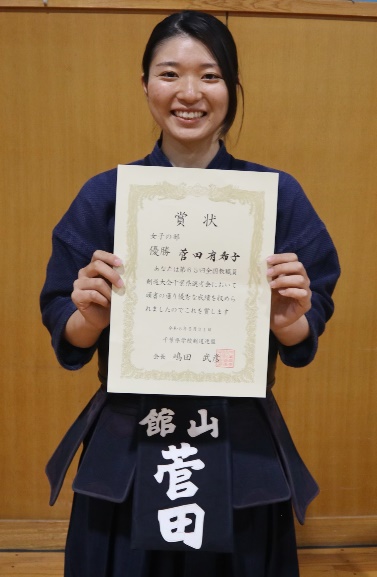 賞状
女子の部
優勝 菅田有希子
あなたは第六七回全国教職員
剣道大会千葉県選考会において
頭書の通り優秀な成績を収めら
れましたのでこれを賞します
千葉県学校剣道連盟
会長 嶋田 武彦
館山
菅田